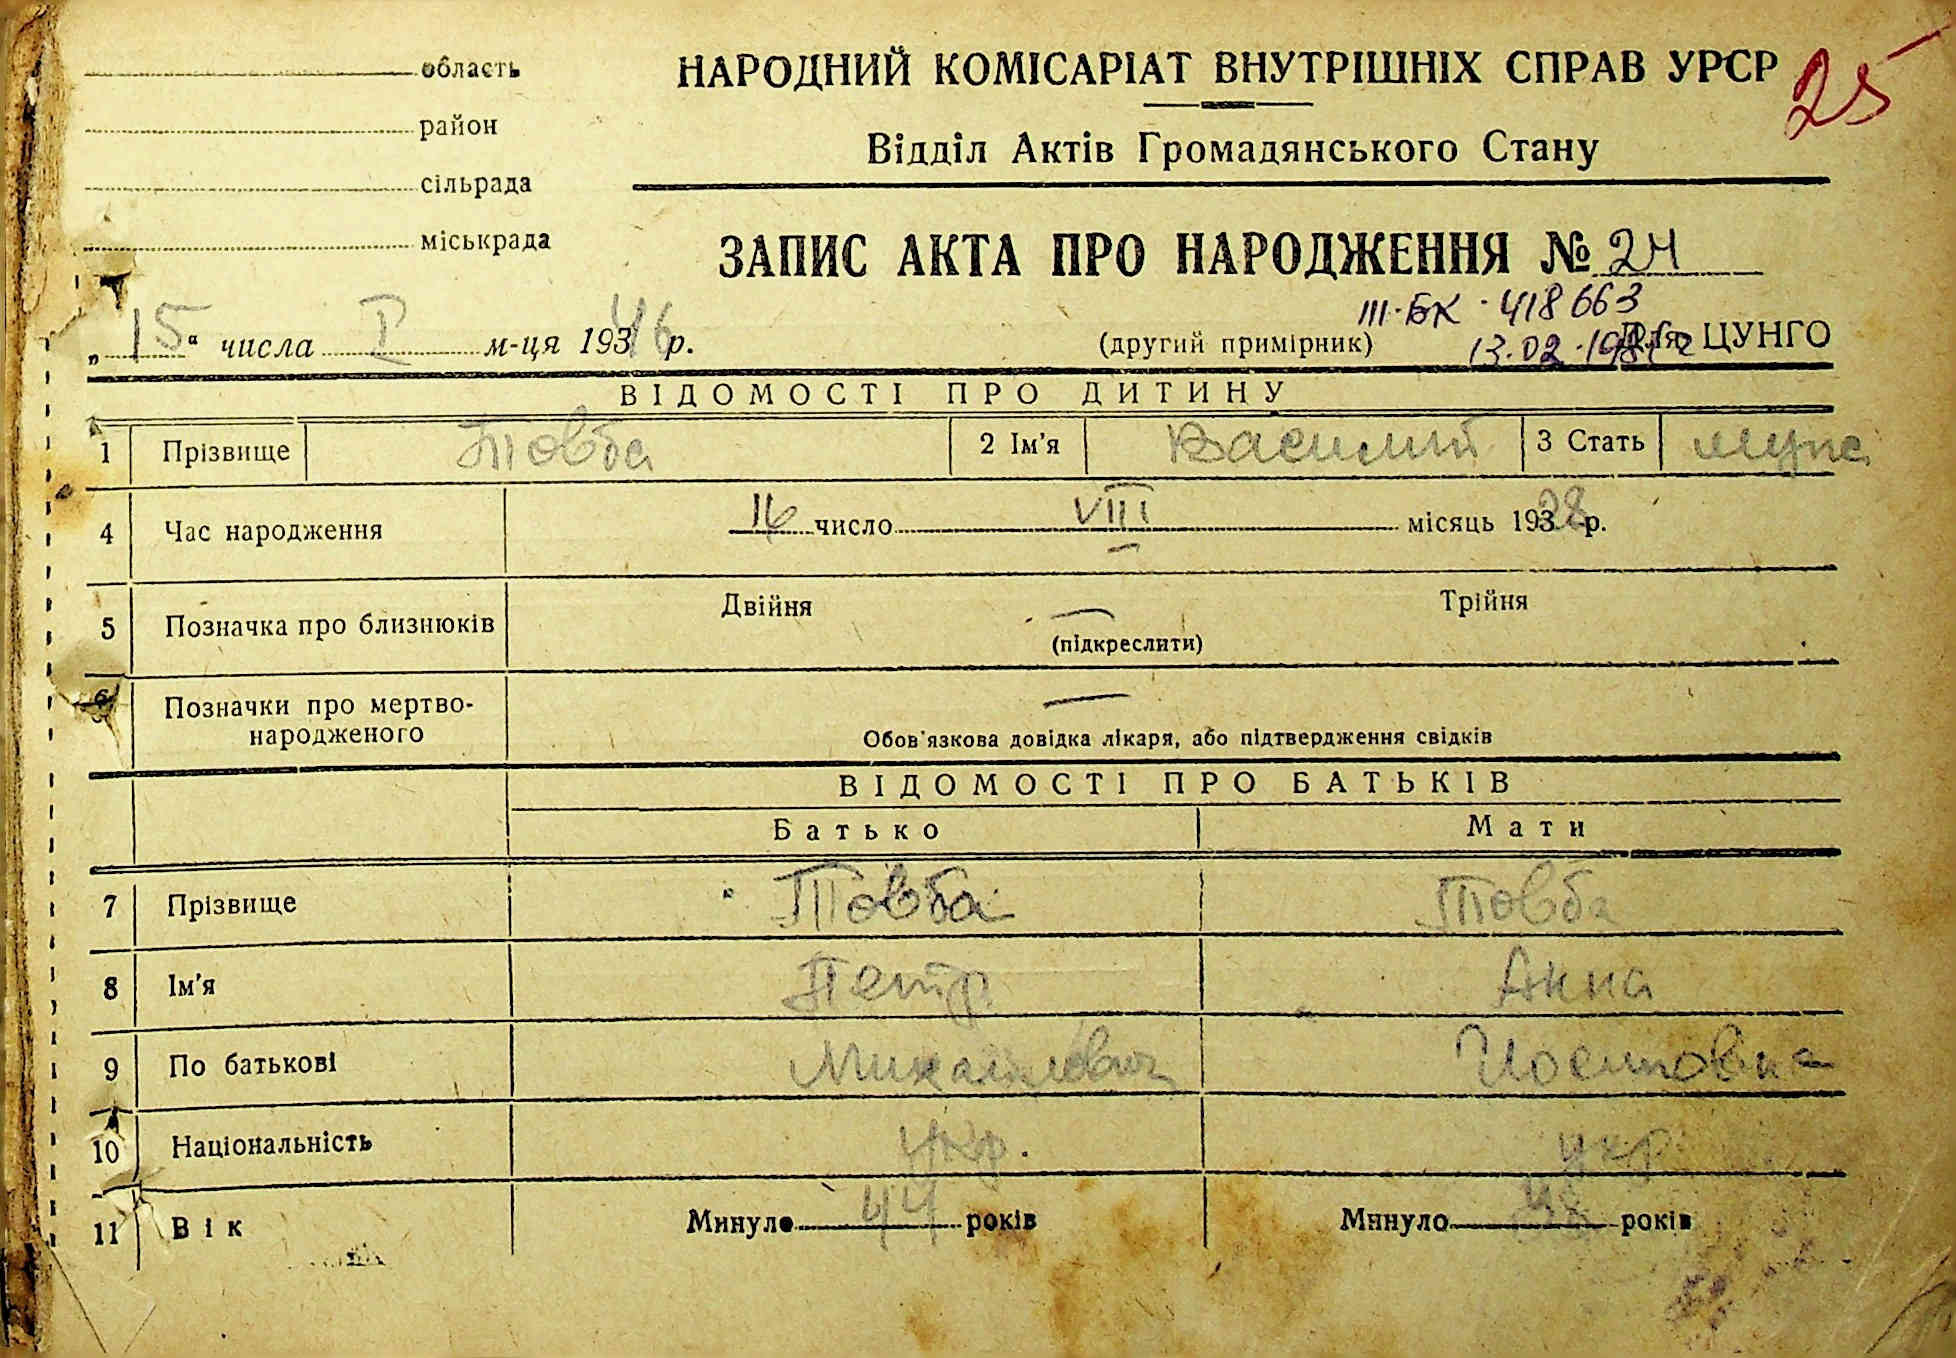 область
район
сільрада
міськрада
НАРОДНИЙ КОМІСАРІАТ ВНУТРІШНІХ СПРАВ УРСР
25
Відділ Актів Громадянського Стану
ЗАПИС АКТА ПРО НАРОДЖЕННЯ № 24
III-БК · 418663
„15“ числа I м-ця 19346 р.
(другий примірник)
Для ЦУНГО
13.02.198
ВІДОМОСТІ ПРО ДИТИНУ
1 Прізвище Товба 2 Ім'я Василий 3 Стать
4 Час народження 16 число VIII місяць 19328 р.
5 Позначка про близнюків Двійня Трійня
(підкреслити)
6 Позначки про мертво-
народженого
Обов'язкова довідка лікаря, або підтвердження свідків
ВІДОМОСТІ ПРО БАТЬКІВ
Батько Мати
7 Прізвище Товба Товба
8 Ім'я Петр Анна
9 По батькові Михайлович Иосиповна
10 Національність укр. укр
11 Вік Минуло 44 років Минуло років